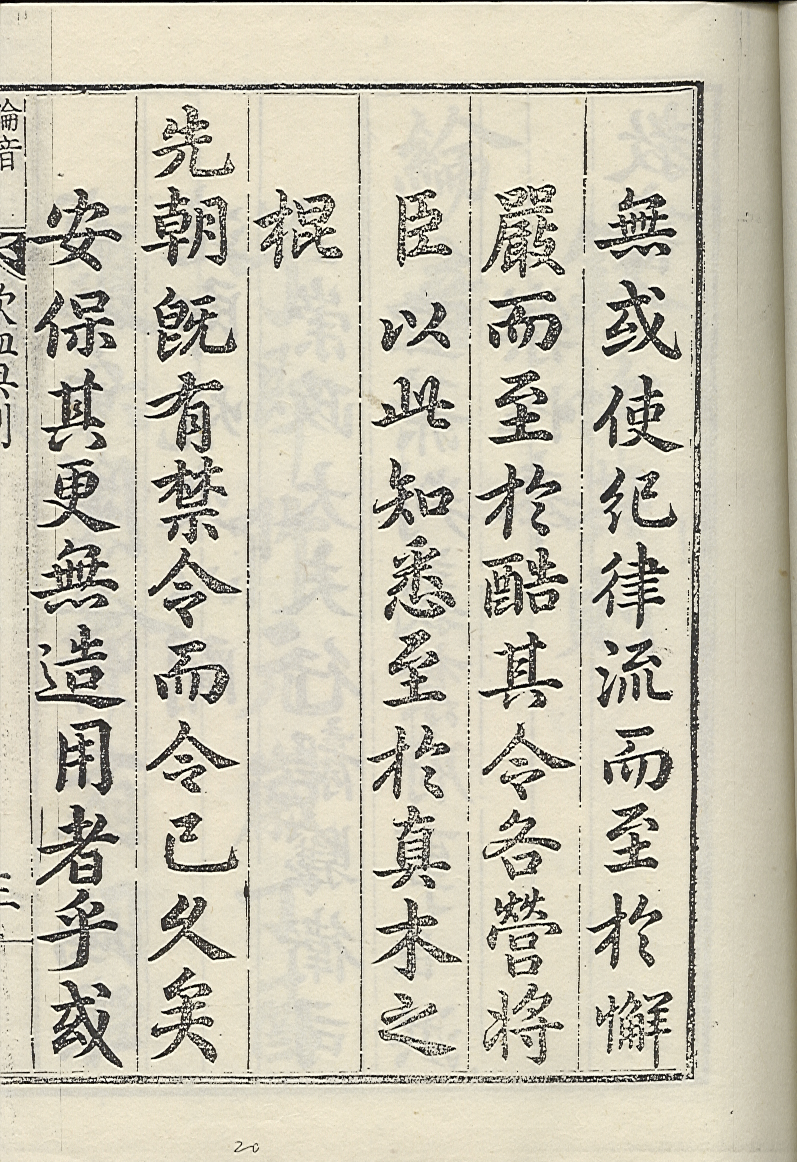 無或使紀律流而至於懈
嚴而至於酷其令各營將
臣以此知悉至於真木之
棍
先朝既有禁令而令已久矣
安保其更無造用者乎或
綸音
欽恤典則
三
20